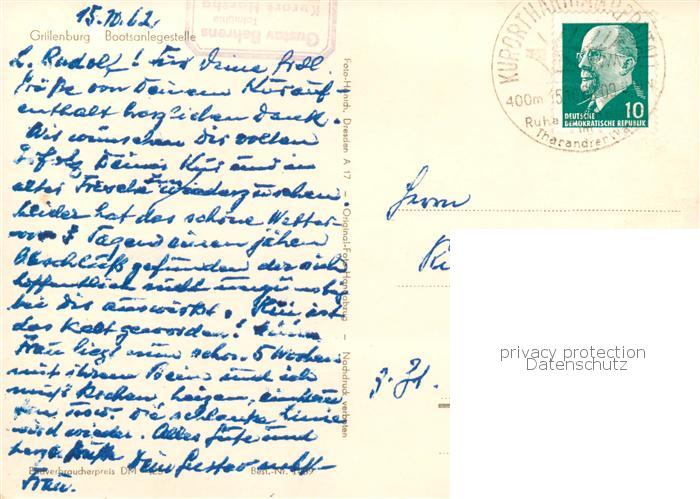 15.10.62.
Grillenburg Bootsanlegestelle
Gustav Behrens
Kurort Hartha
L. Rudolf! Für Deine frdl.
Grüße von Deinem Kurauf-
enthalt herzlichen Dank.
Wir wünschen Dir vollen
Erfolg Deiner Kur und in
alter Frische Dich wiederzusehen
Leider hat das schöne Wetter
vor 3 Tagen einen jähen
Abschluß gefunden der sich
hoffentlich nicht ungünstig
bei Dir auswirkt. Hier ist
das kalt geworden! Meine
Frau liegt nun schon 5 Wochen
mit ihrem Bein und ich
muß kochen, heizen, einkau-
fen usw. Die schlanke Linie
wird wieder. Alles Gute und
herzl. Grüße Dein Gustav nebst
Frau.
Endverbraucherpreis DM
Best.-Nr.
Foto-Hänich, Dresden A 17 – Original-Foto-Handabzug – Nachdruck verboten
KURORT HARTHA
400m
Ruhe
Tharandter Wald
DEUTSCHE
DEMOKRATISCHE REPUBLIK
10
Herrn
z. Zt.
privacy protection
Datenschutz